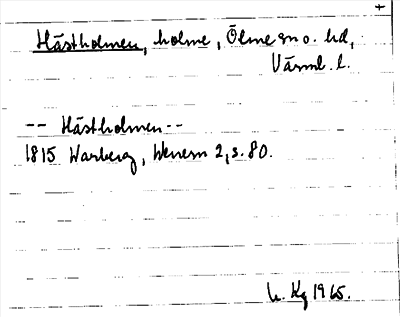 +
Hästholmen, holme, Ölme sn o. hd,
Värml. l.
-- Hästholmen --
1815 Warberg, Wenern 2, s. 80.
1965.